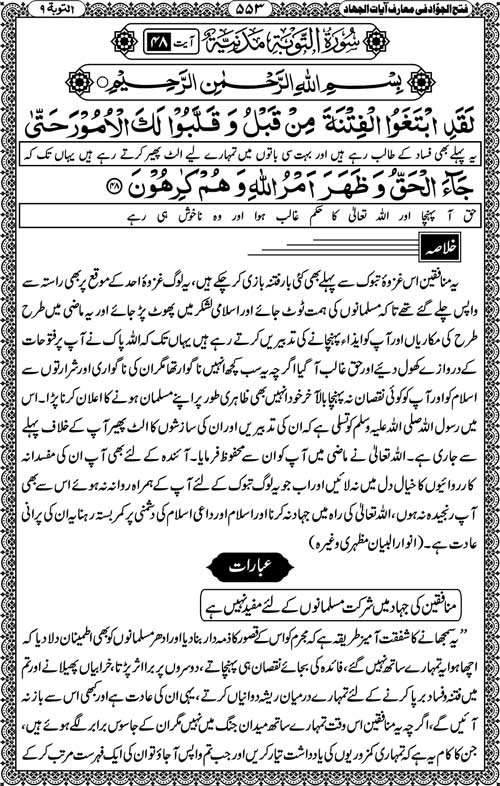 فتح الجوّاد فی معارف آیات الجهاد ۵۵۳ التوبة ۹
سُورَةُ التَّوْبَةِ مَدَنِيَّة آیت ۴۸
بِسْمِ اللهِ الرَّحْمٰنِ الرَّحِيْمِ
لَقَدِ ابْتَغَوُا الْفِتْنَةَ مِنْ قَبْلُ وَ قَلَّبُوْا لَكَ الْاُمُوْرَ حَتّٰى
یہ پہلے بھی فساد کے طالب رہے ہیں اور بہت سی باتوں میں تمہارے لیے الٹ پھیر کرتے رہے ہیں یہاں تک کہ
جَآءَ الْحَقُّ وَ ظَهَرَ اَمْرُ اللهِ وَ هُمْ كٰرِهُوْنَ ﴿۴۸﴾
حق آ پہنچا اور اللہ تعالیٰ کا حکم غالب ہوا اور وہ ناخوش ہی رہے
خلاصہ
یہ منافقین اس غزوۂ تبوک سے پہلے بھی کئی بار فتنہ بازی کر چکے ہیں، یہ لوگ غزوۂ احد کے موقع پر بھی راستہ سے
واپس چلے گئے تھے تاکہ مسلمانوں کی ہمت ٹوٹ جائے اور اسلامی لشکر میں پھوٹ پڑ جائے اور یہ ماضی میں طرح
طرح کی مکاریاں اور آپ کو ایذاء پہنچانے کی تدبیریں کرتے رہے ہیں یہاں تک کہ اللہ پاک نے آپ پر فتوحات
کے دروازے کھول دیئے اور حق غالب آ گیا اگرچہ یہ سب کچھ انہیں ناگوار تھا مگر ان کی ناگواری اور شرارتوں سے
اسلام کو اور آپ کو کوئی نقصان نہ پہنچا بالآخر خود انہیں بھی ظاہری طور پر اپنے مسلمان ہونے کا اعلان کرنا پڑا۔ اس
میں رسول اللہ صلی اللہ علیہ وسلم کو تسلی ہے کہ ان کی تدبیریں اور ان کی سازشوں کا الٹ پھیر آپ کے خلاف پہلے
سے جاری ہے۔ اللہ تعالیٰ نے ماضی میں آپ کو ان سے محفوظ فرمایا۔ آئندہ کے لئے بھی آپ ان کی مفسدانہ
کارروائیوں کا خیال دل میں نہ لائیں اور اب جو یہ لوگ تبوک کے لئے آپ کے ہمراہ روانہ نہ ہوئے اس سے بھی
آپ رنجیدہ نہ ہوں، اللہ تعالیٰ کی راہ میں جہاد نہ کرنا اور اسلام اور داعی اسلام کی دشمنی پر کمربستہ رہنا یہ ان کی پرانی
عادت ہے۔ (انوار البیان مظہری وغیرہ)
عبارات
منافقین کی جہاد میں شرکت مسلمانوں کے لئے مفید نہیں ہے
”یہ سمجھانے کا شفقت آمیز طریقہ ہے کہ مجرم کو اس کے قصور کا ذمہ دار بنا دیا اور ادھر مسلمانوں کو بھی اطمینان دلا دیا کہ
اچھا ہوا یہ تمہارے ساتھ نہیں گئے، فائدہ کی بجائے نقصان ہی پہنچاتے، دوسروں پر برا اثر پڑتا خرابیاں پھیلانے اور تم
میں فتنہ و فساد برپا کرنے کے لئے تمہارے درمیان ریشہ دوانیاں کرتے، یہی ان کی عادت ہے اور کبھی اس سے باز نہ
آئیں گے، اگرچہ یہ منافقین اس وقت تمہارے ساتھ میدان جنگ میں نہیں مگر ان کے جاسوس برابر لگے ہوئے ہیں،
جن کا کام یہ ہے کہ تمہاری کمزوریوں کی یادداشت تیار کریں اور جب تم واپس آ جاؤ تو ان کی ایک فہرست مرتب کر کے